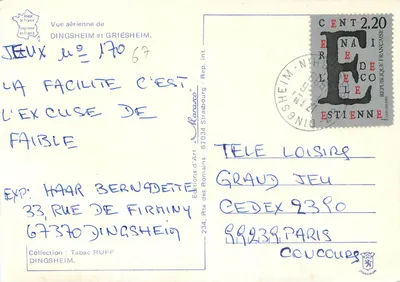 Vue aérienne de
DINGSHEIM et GRIESHEIM.
JEUX No 170 67
LA FACILITE C'EST
L'EXCUSE DE
FAIBLE
EXP: HAAR BERNADETTE
33, RUE DE FIRMINY
67370 DINGSHEIM
Collection : Tabac RUFF
DINGSHEIM.
Editions d'Art
234, Rte des Romains 67034 Strasbourg Rep. Int.
CENT 2,20
REPUBLIQUE FRANÇAISE
E
ESTIENNE
DINGSHEIM
TELE LOISIRS
GRAND JEU
CEDEX 2390
99239 PARIS
CONCOURS